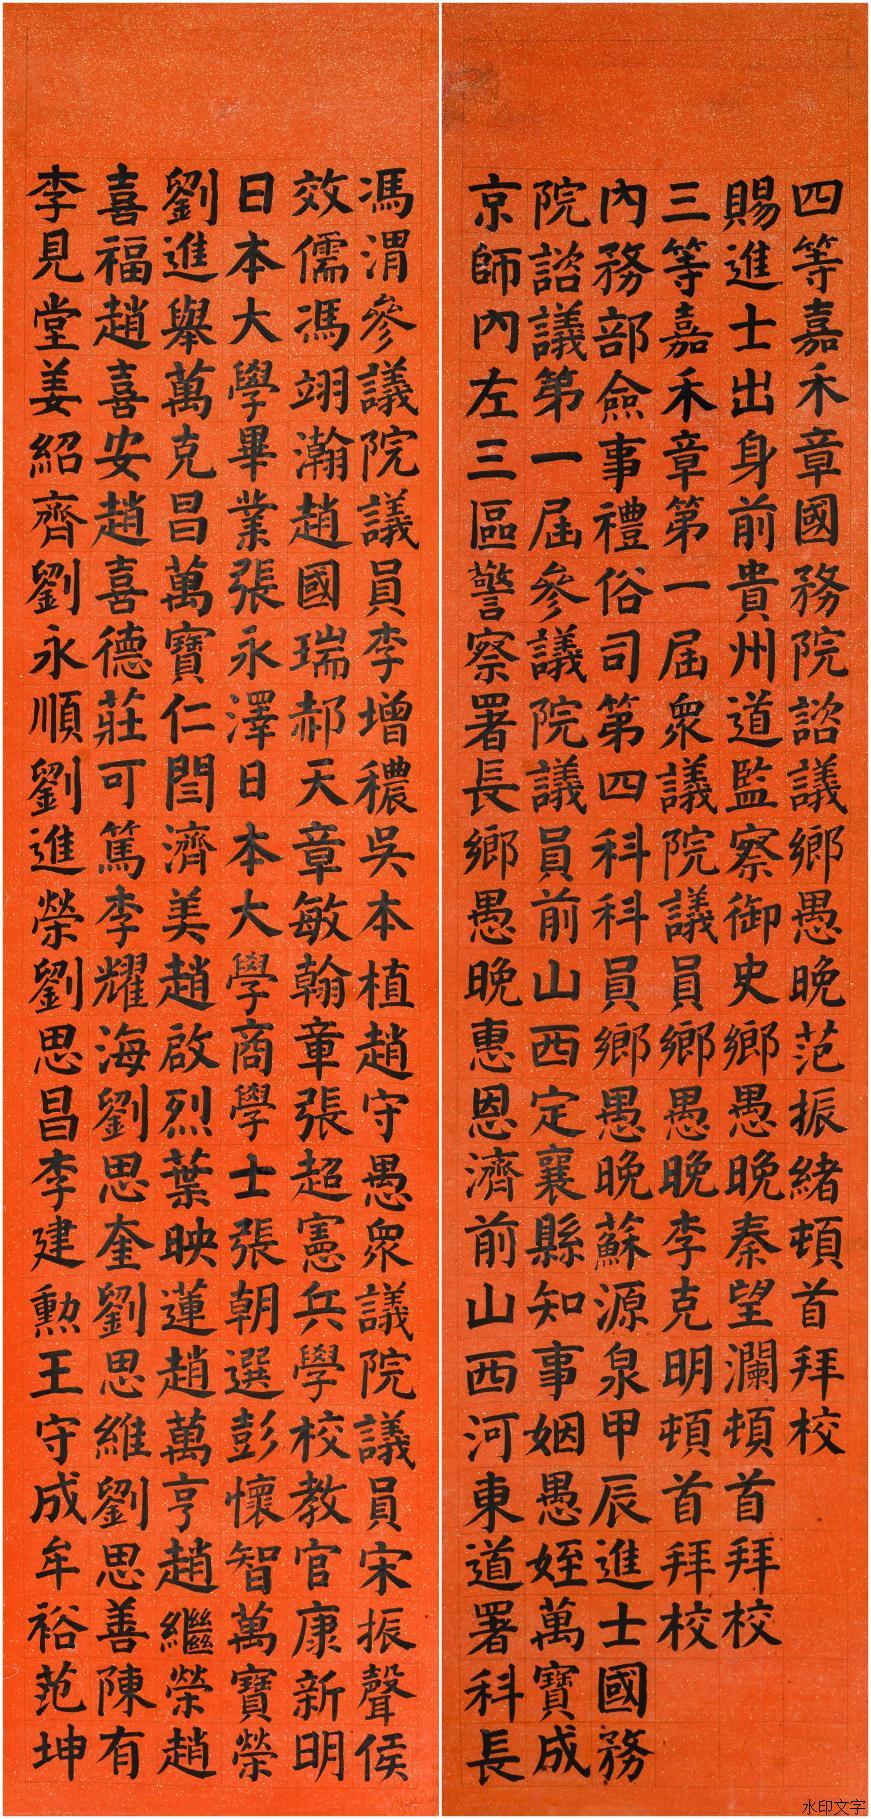 四等嘉禾章國務院諮議鄉愚晚范振緒頓首拜校
賜進士出身前貴州道監察御史鄉愚晚秦望瀾頓首拜校
三等嘉禾章第一屆衆議院議員鄉愚晚李克明頓首拜校
內務部僉事禮俗司第四科科員鄉愚晚蘇源泉甲辰進士國務
院諮議第一屆參議院議員前山西定襄縣知事姻愚姪萬寶成
京師內左三區警察署長鄉愚晚惠恩濟前山西河東道署科長
馮渭參議院議員李增穠吳本植趙守愚衆議院議員宋振聲侯
效儒馮翊瀚趙國瑞郝天章敏翰章張超憲兵學校教官康新明
日本大學畢業張永澤日本大學商學士張朝選彭懷智萬寶榮
劉進舉萬克昌萬寶仁閆濟美趙啟烈葉映蓮趙萬亨趙繼榮趙
喜福趙喜安趙喜德莊可篤李耀海劉思奎劉思維劉思善陳有
李見堂姜紹齊劉永順劉進榮劉思昌李建勳王守成牟裕范坤
水印文字